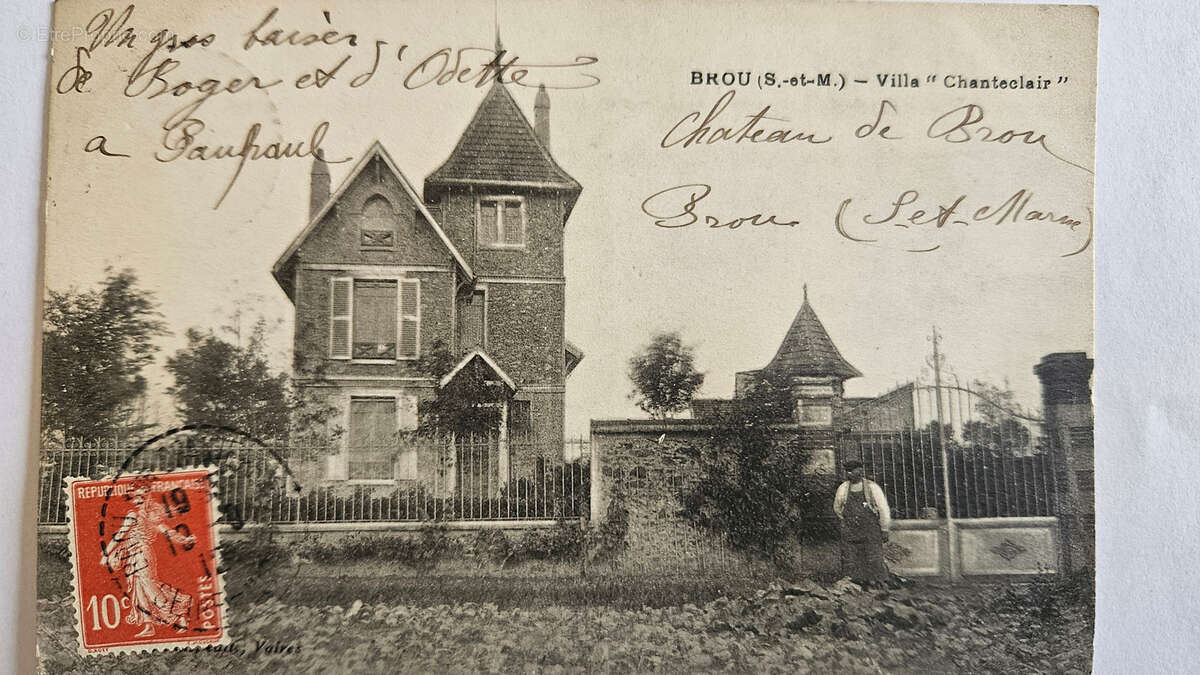 © EtrePr
Un gros baisèr
de Roger et d'Odette
a Paupaul
BROU (S.-et-M.) — Villa "Chanteclair"
Chateau de Brou
Brou (S et Marne)
REPUBLIQUE FRANÇAISE
10c
POSTES
BROU
19
12
SEINE
Vaires